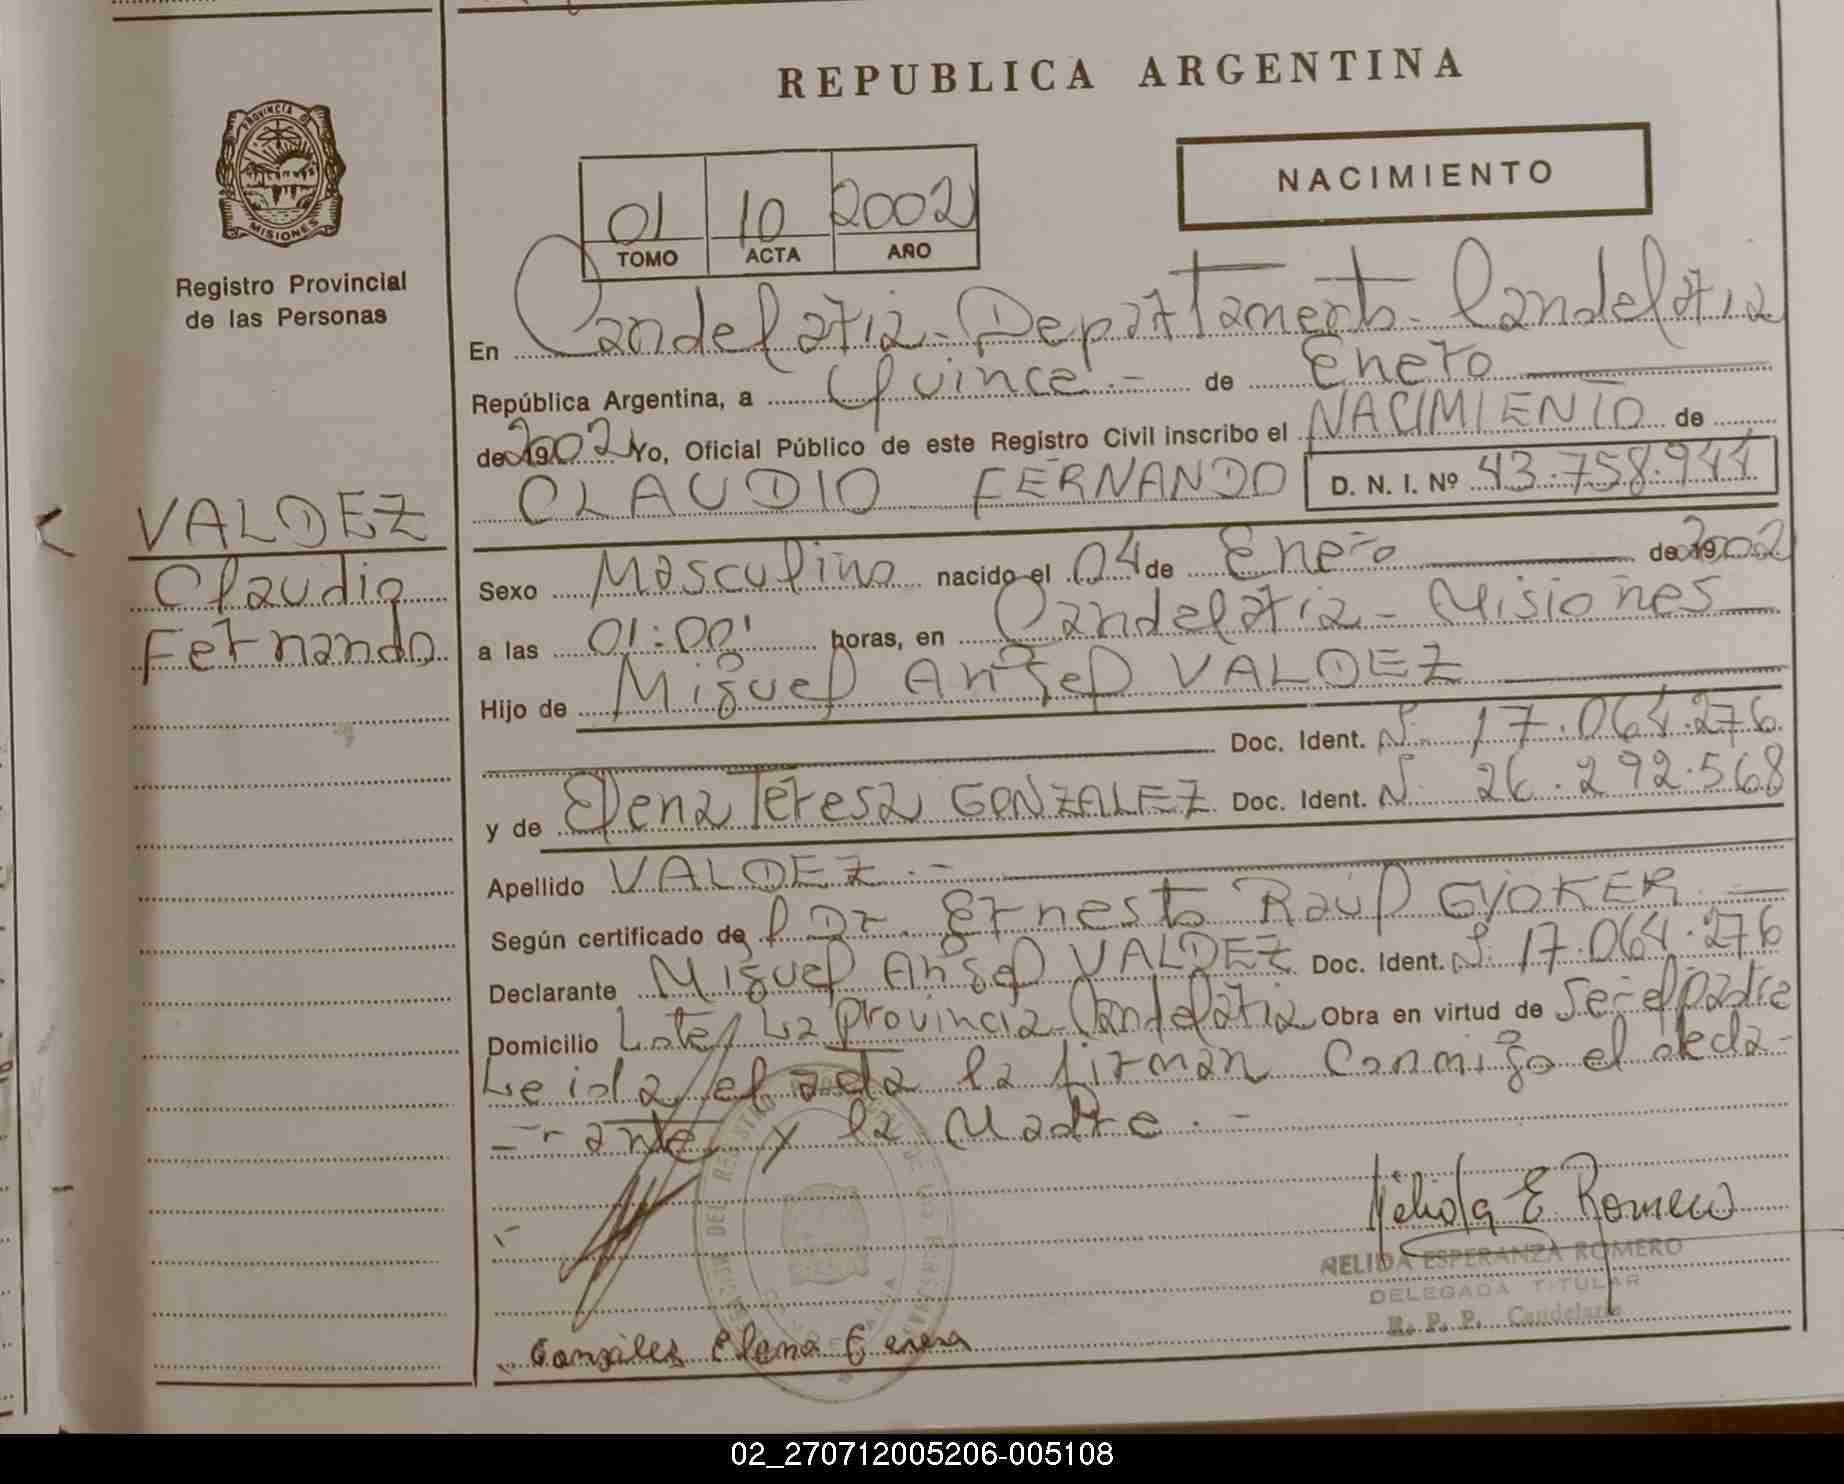 REPUBLICA ARGENTINA
PROVINCIA DE
MISIONES
Registro Provincial
de las Personas
01 10 2002
TOMO ACTA AÑO
NACIMIENTO
En Candelaria - Departamento Candelaria
República Argentina, a Quince.- de Enero
de 19 2002 Yo, Oficial Público de este Registro Civil inscribo el NACIMIENTO de
CLAUDIO FERNANDO D. N. I. Nº 43.758.941
VALDEZ
Claudio
Fernando
Sexo Masculino nacido el 04 de Enero de 19 2002
a las 01:00' horas, en Candelaria - Misiones
Hijo de Miguel Angel VALDEZ
Doc. Ident. N. 17.064.276
y de Elena Teresa GONZALEZ Doc. Ident. N. 26.292.568
Apellido VALDEZ.-
Según certificado del Dr. Ernesto Raúl GYOKER
Declarante Miguel Angel VALDEZ Doc. Ident. N. 17.064.276
Domicilio Lote La Provincia Candelaria Obra en virtud de Ser el padre
Leida el acta la firman conmigo el decla-
-rante y la Madre.-
Nelida E Romero
NELIDA ESPERANZA ROMERO
DELEGADA TITULAR
R. P. P. Candelaria
Gonzales Elena
02_270712005206-005108